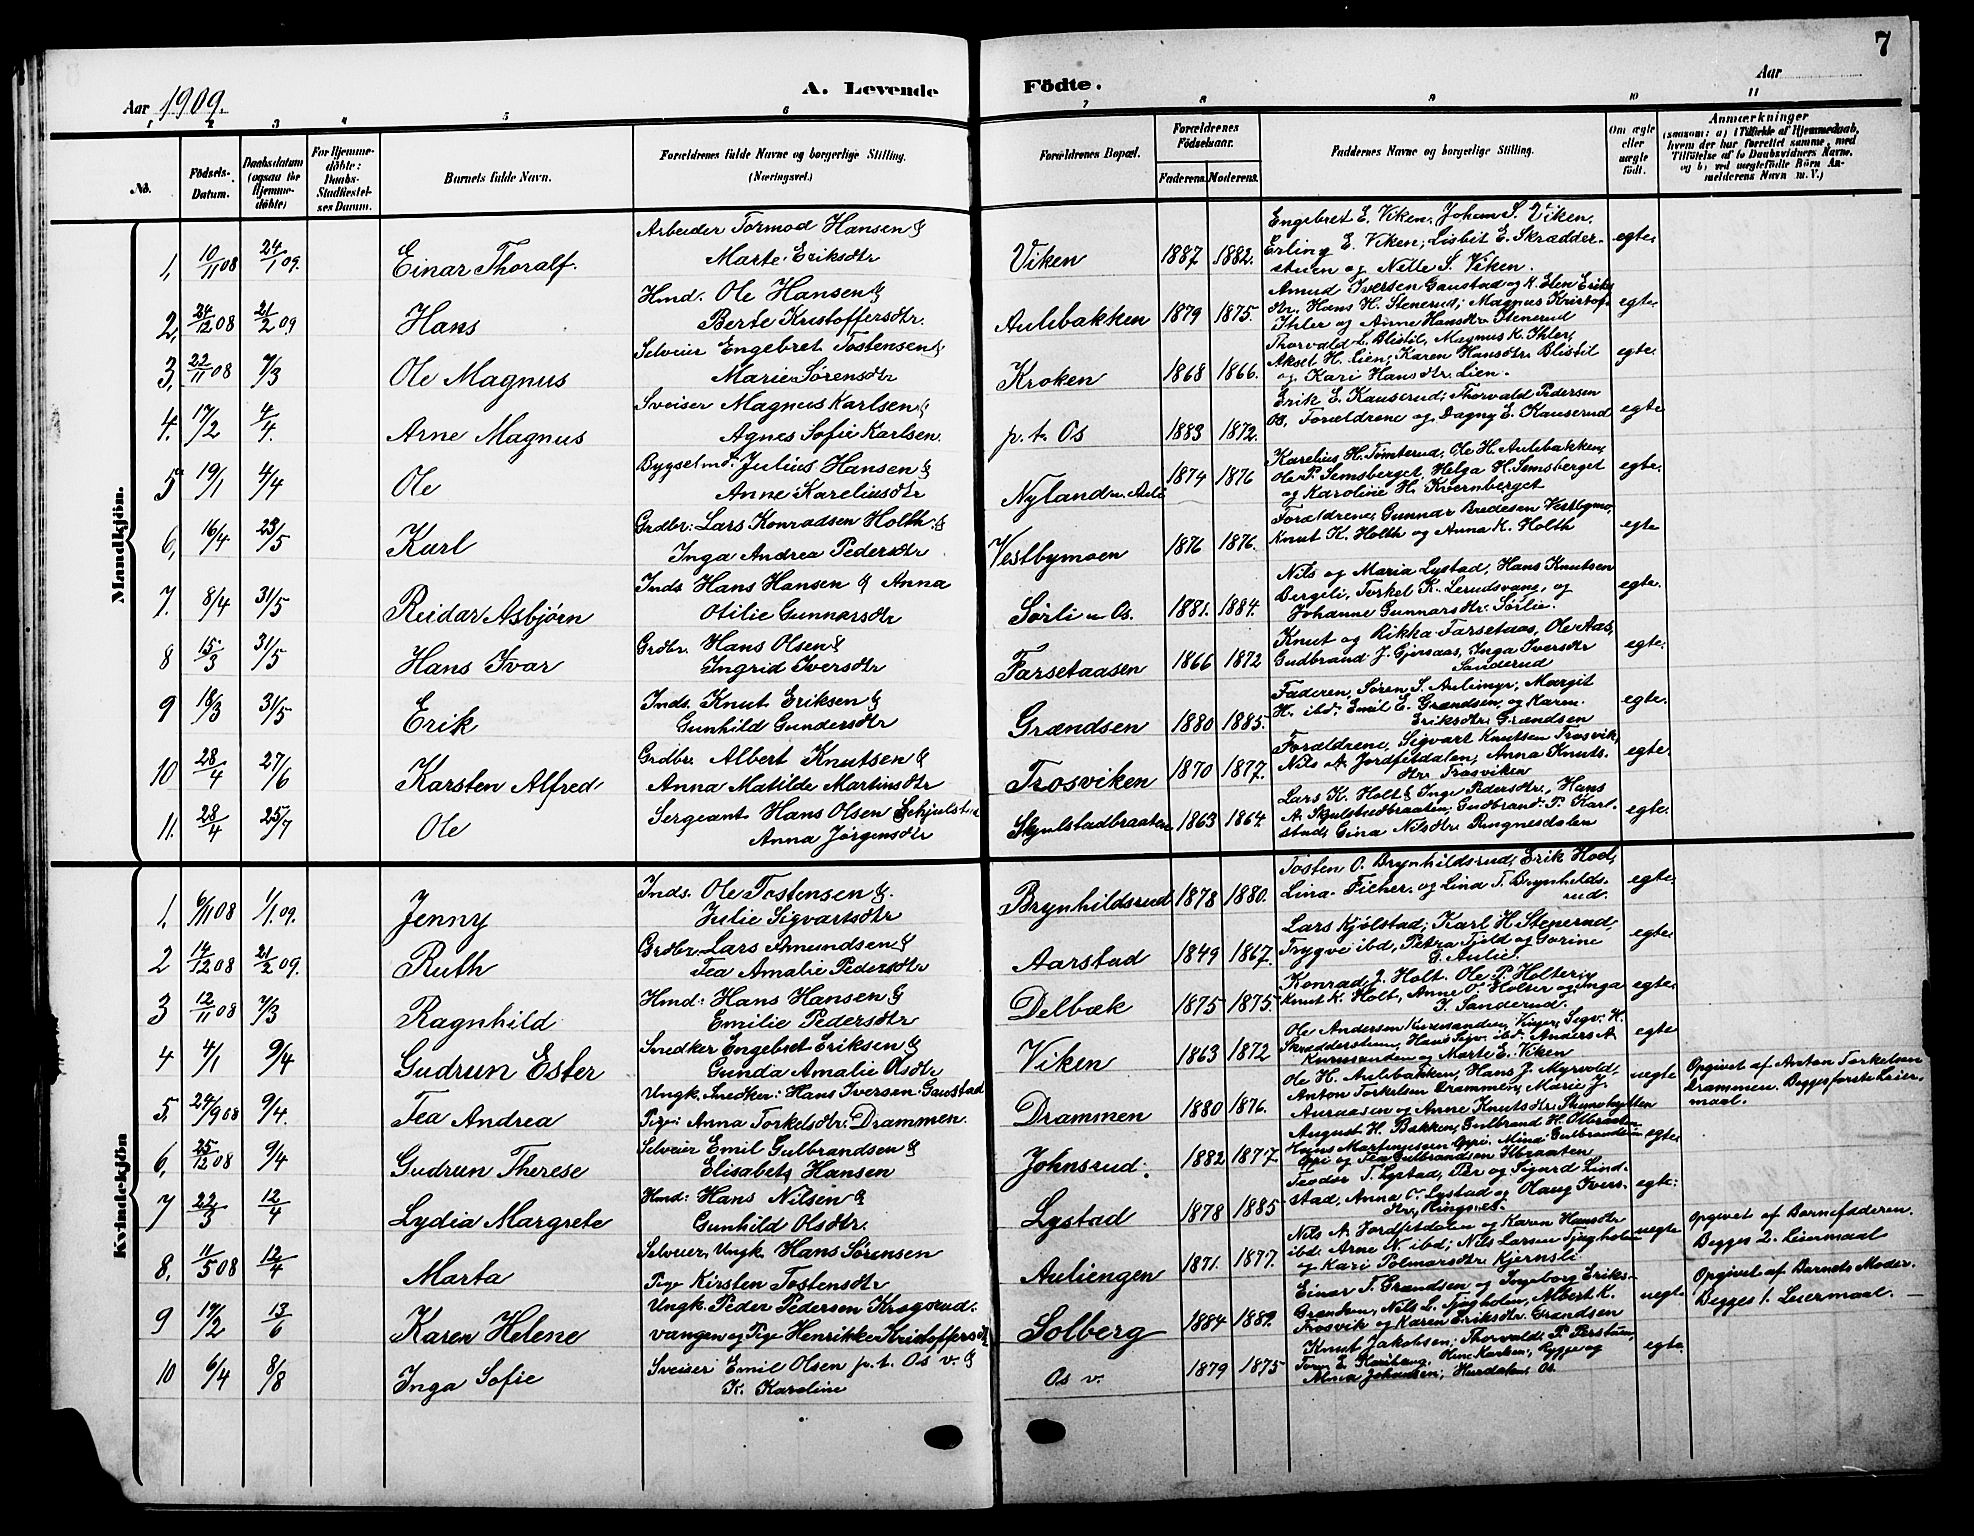 7
Aar 1909.
A. Levende Födte.
Aar
1 2 3 4 5 6 7 8 9 10 11
No.
Födsels-Datum.
Daabsdatum (ogsaa for Hjemme-döbte)
For Hjemme-döbte: Daabs-Stadfæstel-ses Datum.
Barnets fulde Navn.
Forældrenes fulde Navne og borgerlige Stilling.
(Næringsvei.)
Forældrenes Bopæl.
Forældrenes Födselsaar.
Faderens. Moderens.
Faddernes Navne og borgerlige Stilling.
Om ægte eller uægte født.
Anmærkninger
(saasom: a) i Tilfælde af Hjemmedaab,
hvem der har forrettet samme, med
Tilföielse af to Daabsvidners Navne,
og b) ved uægtefödte Börn An-
melderens Navn m. V.)
Mandkjön.
1, 10/11 08 24/1 09. Einar Thoralf. Arbeider Tormod Hansen & Marte Eriksdtr Viken 1887 1882. Engebret E. Viken, Johan S. Viken,
Erling E. Viken, Lisbit E. Skrædder-
stuen og Nille S. Viken. egte
2, 24/12 08 21/2 09 Hans Hmd. Ole Hansen & Berte Kristoffersdtr. Aulibakken 1879 1875. Amud Iversen Gaustad og K. Elen Eriks
dtr. Hans H. Stenerud; Magnus Kristof.
Ihler og Anne Hansdtr Stenerud egte
3, 22/11 08 7/3 Ole Magnus Selveier Engebret Tostensen & Marie Sørensdtr Kroken 1868 1866. Thorvald L. Blistil, Magnus K. Ihler,
Aksel H. Lien, Karen Hansdtr Blistil
og Kari Hansdtr. Lien. egte
4. 17/2 4/4. Arne Magnus Sveiser Magnus Karlsen & Agnes Sofie Karlsen p.t. Os 1883 1872. Erik E. Kauserud; Thorvald Pedersen
Os, Forældrene og Dagny E. Kauserud egte
5 19/1 4/4 Ole Bygselmd. Julius Hansen & Anne Kareliusdtr Nyland u. Auli 1874 1876 Karelius H. Tømterud, Ole H. Aulibakken,
Ole P. Semsberget, Helga H. Semsberget
og Karoline H. Kvernberget egte
6, 16/4 23/5 Karl Grdbr. Lars Konradsen Holth & Inga Andrea Pedersdtr Vestbymoen 1876 1876. Forældrene, Gunnar Bredesen Vestbymo,
Knut K. Holth og Anna K. Holth egte
7. 8/4 31/5 Reidar Asbjørn Inds Hans Hansen & Anna Otilie Gunnarsdtr Sørli u Os. 1881. 1884. Nils og Maria Lystad, Hans Knutsen
Bergeli, Torkel K. Lerudsvang, og
Johanne Gunnarsdtr. Sørlie. egte.
8 15/3 31/5 Hans Ivar Grdbr. Hans Olsen & Ingrid Iversdtr Farsetaasen 1866 1872 Knut og Rikka Farsetaas, Ole Aas,
Gudbrand J. Gjersaas, Inga Iversdtr
Sanderud egte.
9 18/3 31/5 Erik Inds. Knut Eriksen & Gunhild Gundersdtr Grændsen 1880 1885. Faderen, Søren S. Aulimyr, Margit
H. ibd. Emil E. Grændsen, og Karen
Eriksdtr. Grændsen egte.
10 28/4 27/6 Karsten Alfred Grdbr. Albert Knutsen & Anna Matilde Martinsdtr Trosviken 1870 1877. Forældrene, Sigvart Knutsen Trosvik,
Nils A. Jordfitdalen, Anna Knuts
dtr Trosviken egte.
11. 28/4 25/7 Ole Sergeant Hans Olsen Schjulstad Anna Jørgensdtr Skjulstadbraaten 1863 1864. Lars K. Holt & Inge Pedersdtr., Hans
A. Skjulstadbraaten, Gudbrand P. Karl-
stad, Gina Nilsdtr. Ringnesdalen egte.
Kvindekjön
1, 6/11 08 1/1 09. Jenny Inds. Ole Tostensen & Julie Sigvartsdtr Brynhildsrud 1878 1880. Tosten O. Brynhildsrud, Erik Hoel,
Lina Ficher. og Lina T. Brynhilds-
rud. egte
2 14/12 08 21/2 09. Ruth Grdbr. Lars Amundsen & Tea Amalie Pedersdtr Aarstad 1849 1867. Lars Kjølstad; Karl H. Stenerud,
Trygve ibd, Petra Fjeld og Gorine
G. Aulie. egte
3 12/11 08 7/3 Ragnhild Hmd: Hans Hansen & Emilie Pedersdtr Delbæk 1875 1875 Konrad J. Holt. Ole P. Holter,
Knut K. Holt, Anne O. Holter og Inga
J. Sanderud. egte
4 4/1 9/4 Gudrun Ester Snedker Engebret Eriksen & Gunda Amalie Olsdtr Viken 1863 1872 Ole Andersen Kurusanden, Vinger, Sigv. H.
Skrædderstuen, Hans Sigv. ibd. Anders A
Kurusanden og Marte E. Viken egte
5. 24/9 08 9/4. Tea Andrea Ungk. Snedker: Hans Iversen Gaustad Pige Anna Torkelsdtr. Drammen. Drammen 1880 1876. Ole H. Aulibakken, Hans J. Myrvold,
Anton Torkelsen Drammen, Marie J.
Auraasen og Anne Knutsdtr. uegte Opgivet af Anton Torkelsen
Drammen. Begges første Leier-
maal.
6, 25/12 08 9/4 Gudrun Therese Selveier Emil Gulbrandsen & Elisabeth Hansen Johnsrud. 1882 1877 August H. Bakken, Gulbrand H. Olbraaten
Hans Martinusen Opri. Mina Gulbrandsen
Opri og Tea Gulbrandsen Olbraaten egte
7 22/3 12/4 Lydia Margrete Hmd: Hans Nilsen & Gunhild Olsdtr. Lystad 1878 1885 Teodor T. Lystad, Per og Sigurd Lind-
stad, Anna O. Lystad og Olaug Ivers-
dtr. Ringnes. egte:
8. 11/5 08 12/4 Marta Selveier, Ungk. Hans Sørensen Pige Kirsten Tostensdtr Auliengen 1871. 1877. Nils A. Jordfitdalen og Karen Hansdtr
ibd. Arne N. ibd; Nils Larsen Tjugholm
og Kari Polmarsdtr Kjernsli uegte Opgivet af Barnefaderen.
Begges 2. Leiermaal
9 17/2 13/6 Karen Helene Ungk. Peder Pedersen Krogsrud-vangen og Pige Henrikke Kristoffersdtr Solberg 1884 1882. Einar T. Grændsen og Ingeborg Eriks-
Grændsen, Nils L. Tjugholm, Albert K.
Trosvik og Karen Eriksdtr. Grændsen uegte Opgivet af Barnets Moder.
Begges 1. Leiermaal.
10 6/4 8/8 Inga Sofie Sveiser Emil Olsen p.t. Os v. & K. Karoline Os v. 1879 1875 Knut Jakobsen; Thorvald P.
Johansen, Hurdalen, Os. egte